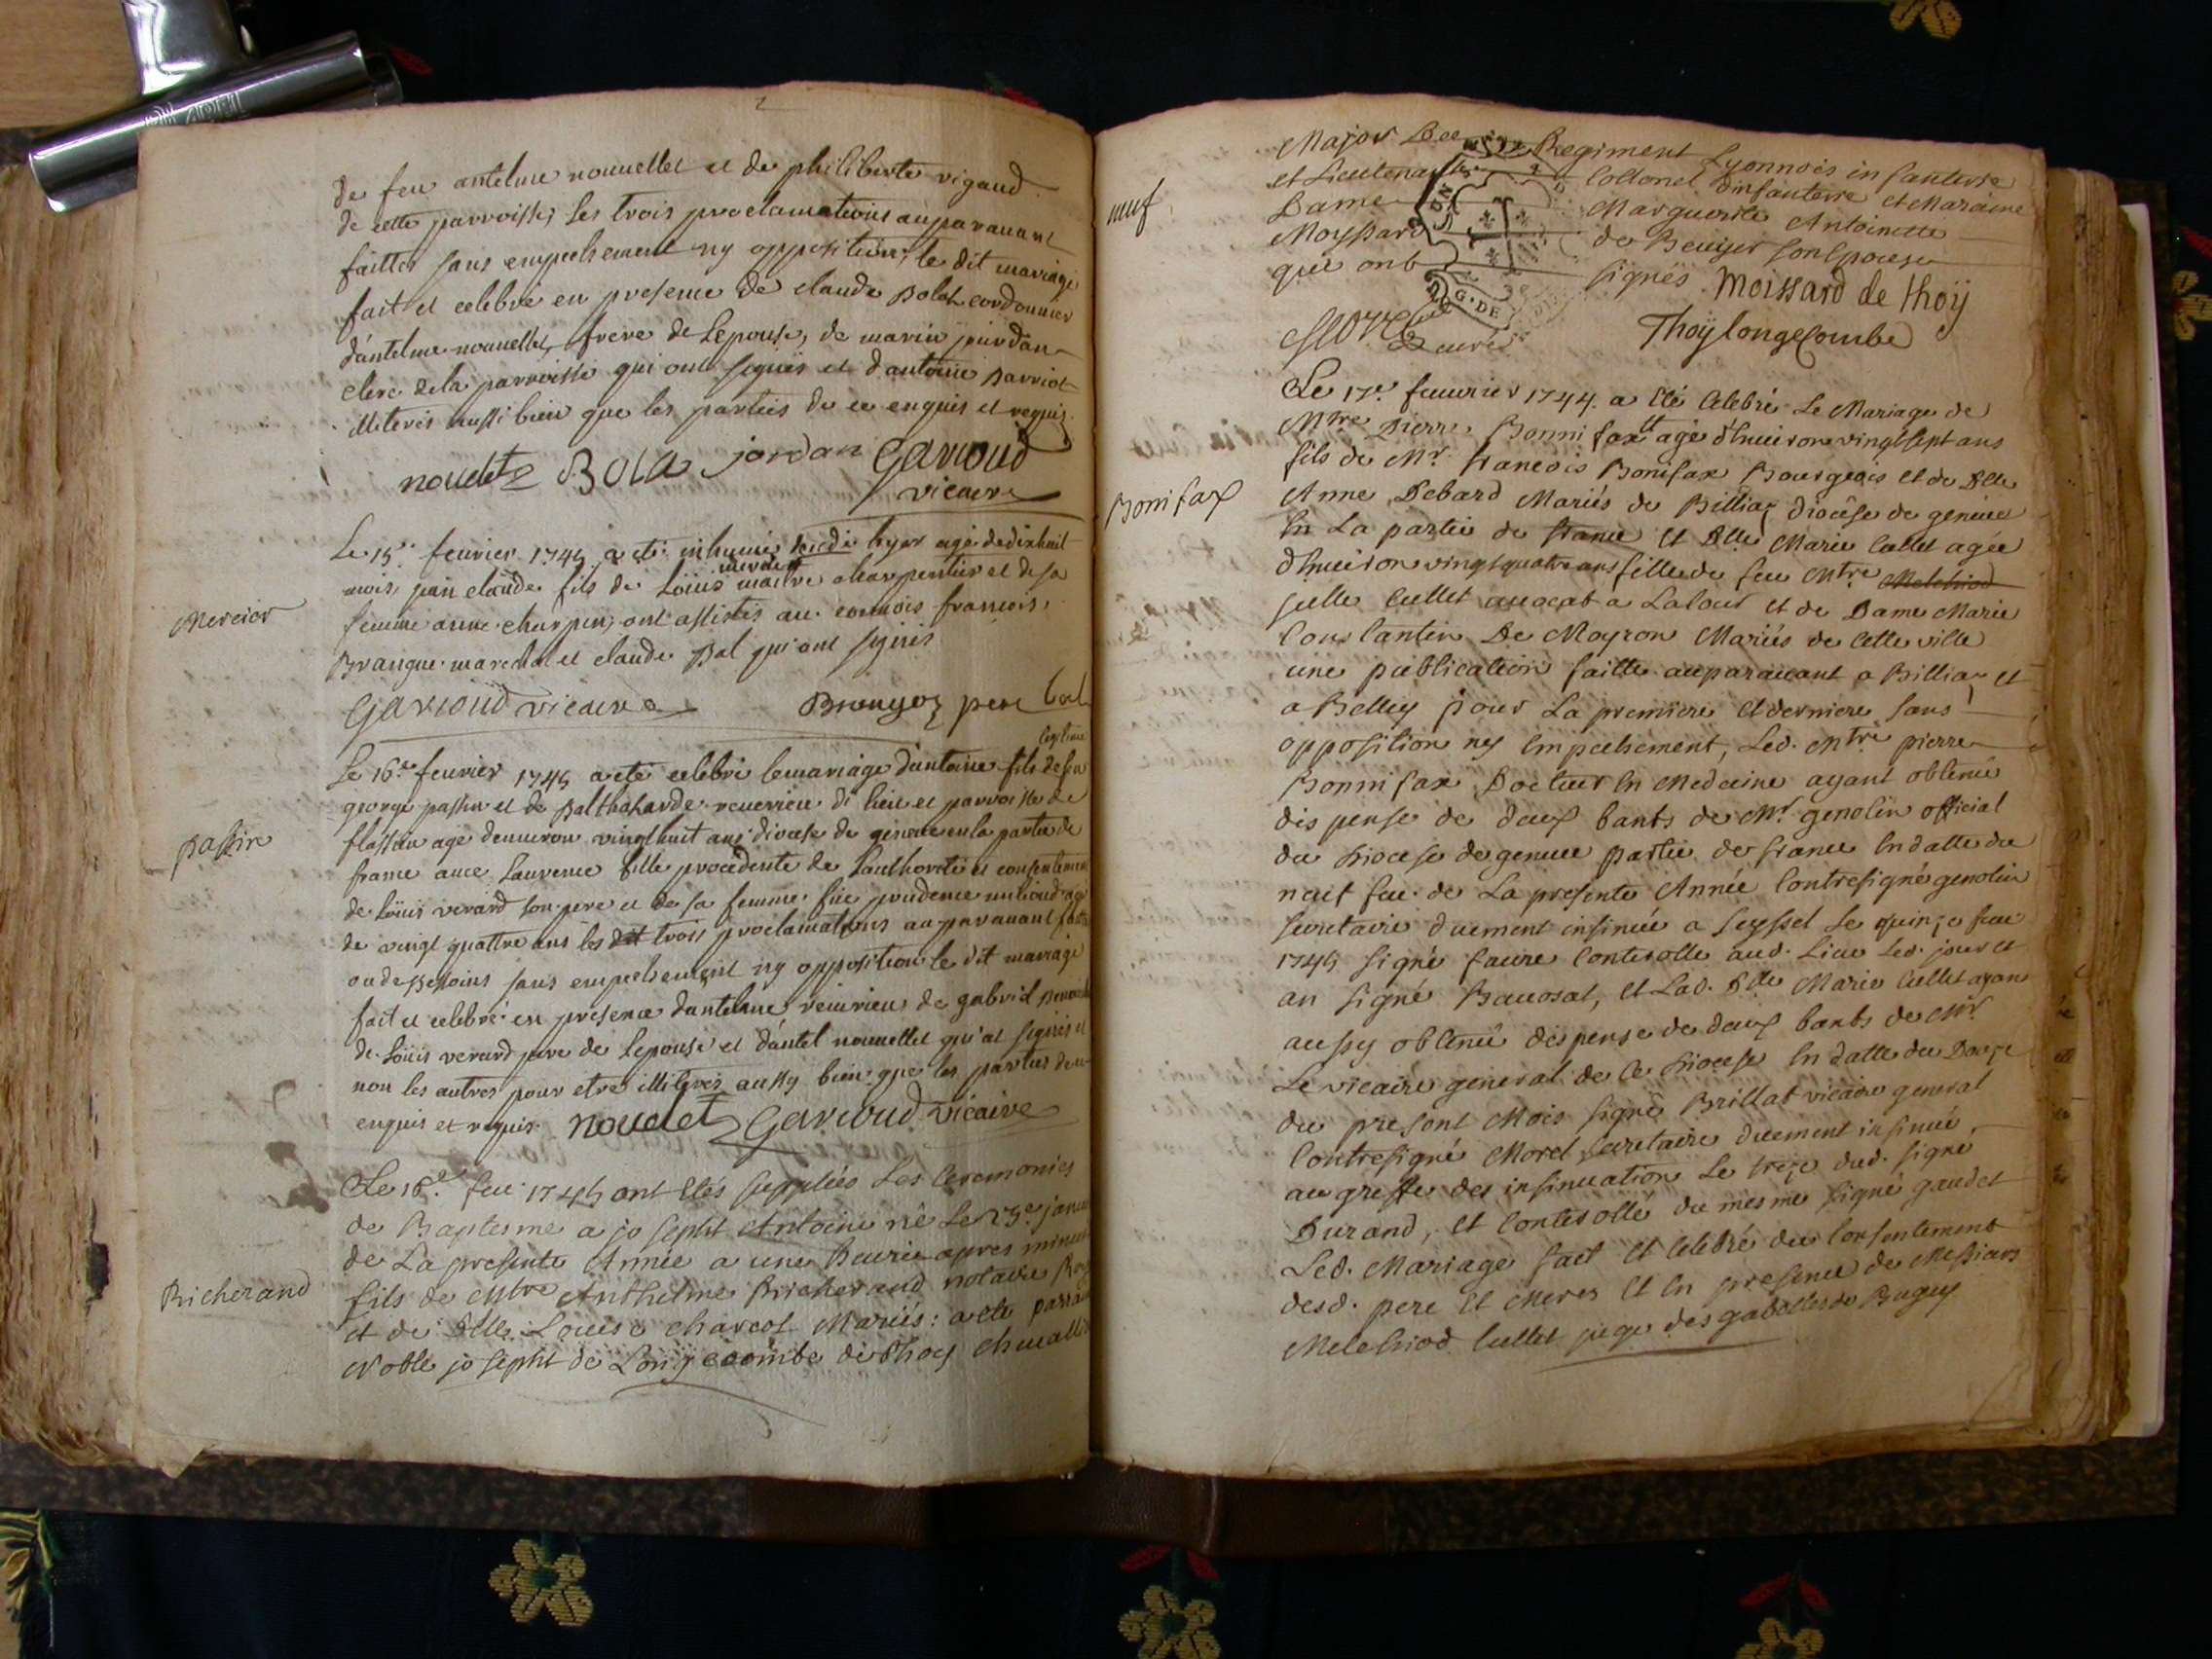 de feu antelme nouuellet et de philiberte rigaud
de cette parroisse, les trois proclamations auparauant
faittes sans empechement ny opposition, le dit mariage
fait et celebré en presence de claude Bolat cordonnier
d'antelme nouuellet, frere de Lepouse, de marin jourdan
clerc de la parroisse qui ont signés et d'antoine Barriot
illiterés aussi bien que les parties de ce enquis et requis
nouelet Bola jordan Garioud
vicaire
Le 15e feurier 1745 a eté inhumé hyer agé de dixhuit
mois, jean claude fils de Loüis mercier maitre charpentier et de sa
Mercier
femme anne charpin, ont assistés au conuois francois
Brangue marechal et claude Bal qui ont signés
Garioud vicaire pere bal
legitime
Le 16e feurier 1745 a eté celebré le mariage d'antoine fils de feu
george passin et de Balthazarde reuerieu du lieu et parroisse de
passin
agé denuiron vingt huit ans diocese de geneue en la partie de
france auec Laurence fille procedente de Lauthorité et consentement
de Loüis verard son pere et de sa femme prudence agée
de vingt quattre ans les trois proclamations auparauant faittes
sans empechement ny opposition le dit mariage
fait et celebré en presence dantelme reuerieu de gabriel
de Loüis verard pere de Lepouse et d'antel nouuellet qui at signés et
non les autres pour etre illiterés aussy bien que les parties de ce
enquis et requis. nouelet Garioud vicaire
Le 16e feu 1745 ont étés suppliés Les Ceremonies
de Baptesme a josepht Antoine né Le janu
de La presente Année a une heurie apres minuit
Richerand
fils de Mtre Anthelme Richerand notaire Roy
et de Dlle Louise charcot Mariés: a eté parrain
Noble josepht de Longecombe de Thoy cheuallier
Major Regiment Lyonnois infanterie
et Lieutenant Collonel dinfanterie et Maraine
neuf
Dame Marguerite Antoinette
Moyssard de Beuyer son Epouse
qui ont signés Moissard de thoÿ
G. DE
curé ThoÿlongeCombe
Le 17e feuurier 1744 a été Celebré Le Mariage de
Mtre Pierre Bonnifax agé d'Enuiron vingtsept ans
fils de Mr francois Bonifax Bourgeois et de Dlle
Bonifax
Anne Debard Mariés de Billiaz diocêse de geneue
En La partie de france et Dlle Marie Cullet agée
d'Enuiron vingtquatre ans fille de feu Mtre Melchiod
Cullet auocat a Lacour et de Dame Marie
Constantin De Moyron Mariés de Cette ville
une publication faitte auparauant a Billiaz et
a Belley pour La premiere et derniere sans
opposition ny Empechement, Led. Mtre pierre
Bonnifax Docteur En Medecine ayant obtenu
dispense de deux bants de Mr genolin official
du Diocese de geneue partie de france En datte du
neuf feu. de La presente Année Contresigné genolin
secretaire duement insinuée a seyssel Le quinze feu
1745 signé faure Contérollé aud. Lieu Led. jour et
an signé Bauosat, et Lad. Dlle Marie Cullet ayant
aussy obtenu dispense de deux bants de Mr
Le vicaire general de Ce Diocese En datte du Douze
du present Mois signé Brillat vicaire general
Contresigné Morel secretaire duement insinuée
au greffe des insinuations Le treize dud. signé
Durand, et Contérollé du mesme signé gaudet
Led. Mariage fait et Celebré du Consentement
desd. pere et Meres et En presence de Messieurs
Melchiod Cullet juge des gabelles de Bugey